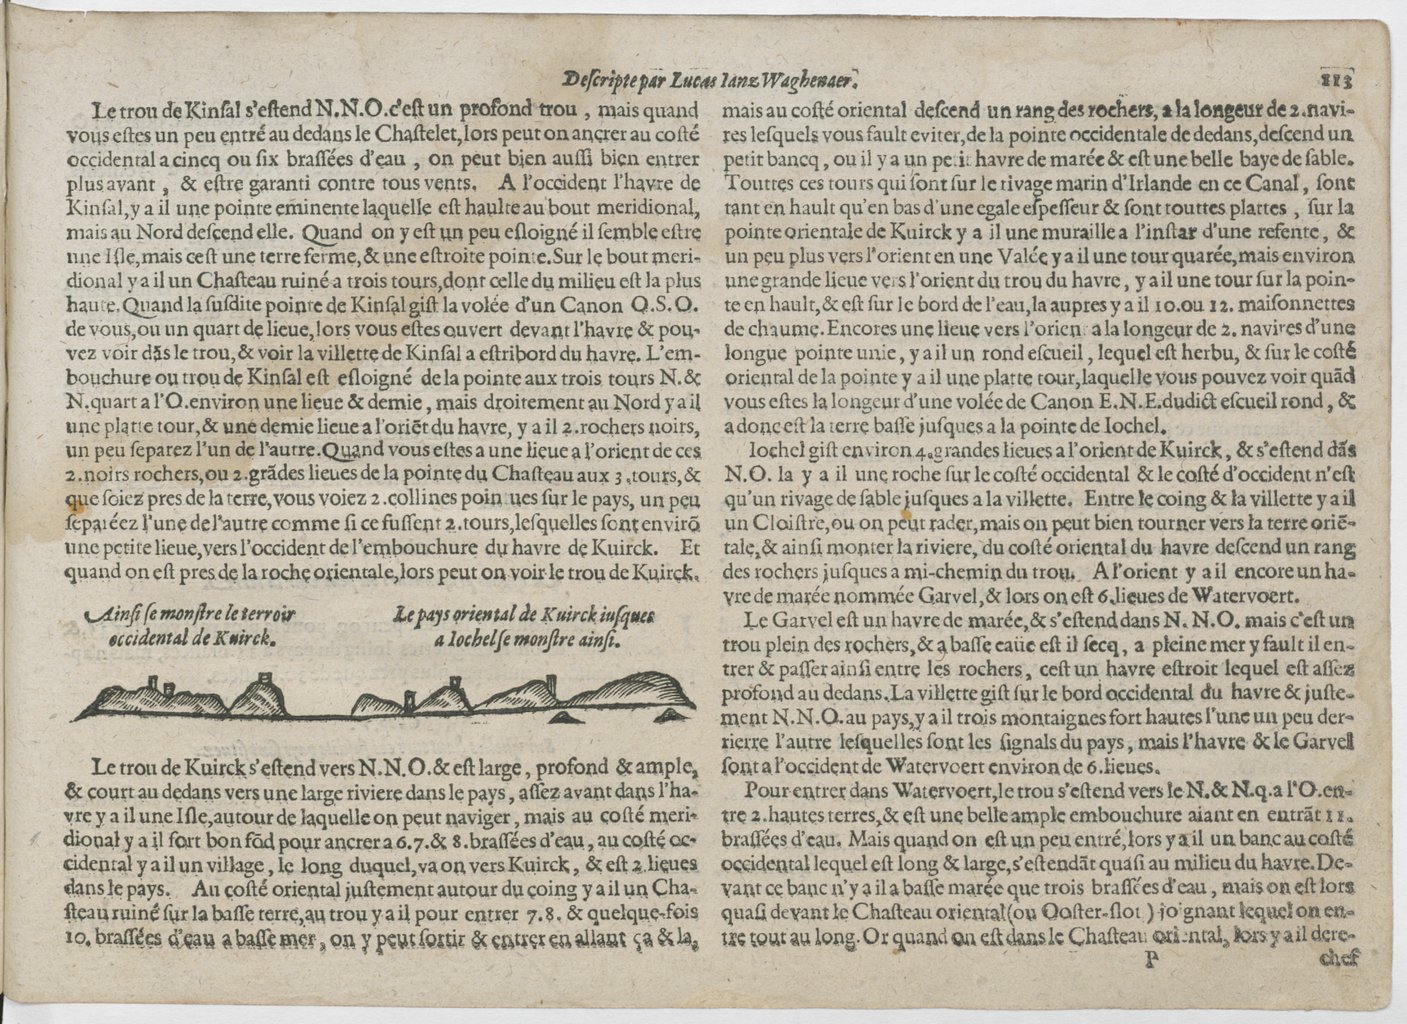 Descripte par Lucas Ianz Waghenaer.
113
Le trou de Kinsal s'estend N.N.O. c'est un profond trou, mais quand
vous estes un peu entré au dedans le Chastelet, lors peut on ancrer au costé
occidental a cincq ou six brassées d'eau, on peut bien aussi bien entrer
plus avant, & estre garanti contre tous vents. A l'occident l'havre de
Kinsal, y a il une pointe eminente laquelle est haulte au bout meridional,
mais au Nord descend elle. Quand on y est un peu esloigné il semble estre
une Isle, mais cest une terre ferme, & une estroite pointe. Sur le bout meri-
dional y a il un Chasteau ruiné a trois tours, dont celle du milieu est la plus
haute. Quand la susdite pointe de Kinsal gist la volée d'un Canon O.S.O.
de vous, ou un quart de lieue, lors vous estes ouvert devant l'havre & pou-
vez voir dãs le trou, & voir la villette de Kinsal a estribord du havre. L'em-
bouchure ou trou de Kinsal est esloigné de la pointe aux trois tours N. &
N. quart a l'O. environ une lieue & demie, mais droitement au Nord y a il
une platte tour, & une demie lieue a l'oriẽt du havre, y a il 2. rochers noirs,
un peu separez l'un de l'autre. Quand vous estes a une lieue a l'orient de ces
2. noirs rochers, ou 2. grãdes lieues de la pointe du Chasteau aux 3. tours, &
que soiez pres de la terre, vous voiez 2. collines pointues sur le pays, un peu
separéez l'une de l'autre comme si ce fussent 2. tours, lesquelles sont envirõ
une petite lieue, vers l'occident de l'embouchure du havre de Kuirck. Et
quand on est pres de la roche orientale, lors peut on voir le trou de Kuirck.
Ainsi se monstre le terroir
occidental de Kuirck.
Le pays oriental de Kuirck iusques
a Iochel se monstre ainsi.
Le trou de Kuirck s'estend vers N.N.O. & est large, profond & ample,
& court au dedans vers une large riviere dans le pays, assez avant dans l'ha-
vre y a il une Isle, autour de laquelle on peut naviger, mais au costé meri-
dional y a il fort bon fõd pour ancrer a 6. 7. & 8. brassées d'eau, au costé oc-
cidental y a il un village, le long duquel, va on vers Kuirck, & est 2. lieues
dans le pays. Au costé oriental justement autour du coing y a il un Cha-
steau ruiné sur la basse terre, au trou y a il pour entrer 7. 8. & quelque-fois
10. brassées d'eau a basse mer, on y peut sortir & entrer en allant ça & la,
mais au costé oriental descend un rang des rochers, a la longeur de 2. navi-
res lesquels vous fault eviter, de la pointe occidentale de dedans, descend un
petit bancq, ou il y a un petit havre de marée & est une belle baye de sable.
Touttes ces tours qui sont sur le rivage marin d'Irlande en ce Canal, sont
tant en hault qu'en bas d'une egale espesseur & sont touttes plattes, sur la
pointe orientale de Kuirck y a il une muraille a l'instar d'une refente, &
un peu plus vers l'orient en une Valée y a il une tour quarée, mais environ
une grande lieue vers l'orient du trou du havre, y a il une tour sur la poin-
te en hault, & est sur le bord de l'eau, la aupres y a il 10. ou 12. maisonnettes
de chaume. Encores une lieue vers l'orient a la longeur de 2. navires d'une
longue pointe unie, y a il un rond escueil, lequel est herbu, & sur le costé
oriental de la pointe y a il une platte tour, laquelle vous pouvez voir quãd
vous estes la longeur d'une volée de Canon E.N.E. dudict escueil rond, &
adonc est la terre basse jusques a la pointe de Iochel.
Iochel gist environ 4. grandes lieues a l'orient de Kuirck, & s'estend dãs
N.O. la y a il une roche sur le costé occidental & le costé d'occident n'est
qu'un rivage de sable jusques a la villette. Entre le coing & la villette y a il
un Cloistre, ou on peut rader, mais on peut bien tourner vers la terre oriẽ-
tale, & ainsi monter la riviere, du costé oriental du havre descend un rang
des rochers jusques a mi-chemin du trou. A l'orient y a il encore un ha-
vre de marée nommée Garvel, & lors on est 6. lieues de Watervoert.
Le Garvel est un havre de marée, & s'estend dans N. N.O. mais c'est un
trou plein des rochers, & a basse eaüe est il secq, a pleine mer y fault il en-
trer & passer ainsi entre les rochers, cest un havre estroit lequel est assez
profond au dedans. La villette gist sur le bord occidental du havre & juste-
ment N.N.O. au pays, y a il trois montaignes fort hautes l'une un peu der-
rierre l'autre lesquelles sont les signals du pays, mais l'havre & le Garvel
sont a l'occident de Watervoert environ de 6. lieues.
Pour entrer dans Watervoert, le trou s'estend vers le N. & N.q.a l'O. en-
tre 2. hautes terres, & est une belle ample embouchure aiant en entrãt 11.
brassées d'eau. Mais quand on est un peu entré, lors y a il un banc au costé
occidental lequel est long & large, s'estendãt quasi au milieu du havre. De-
vant ce banc n'y a il a basse marée que trois brassées d'eau, mais on est lors
quasi devant le Chasteau oriental (ou Ooster-slot) joignant lequel on en-
tre tout au long. Or quand on est dans le Chasteau oriental, lors y a il dere-
P
chef